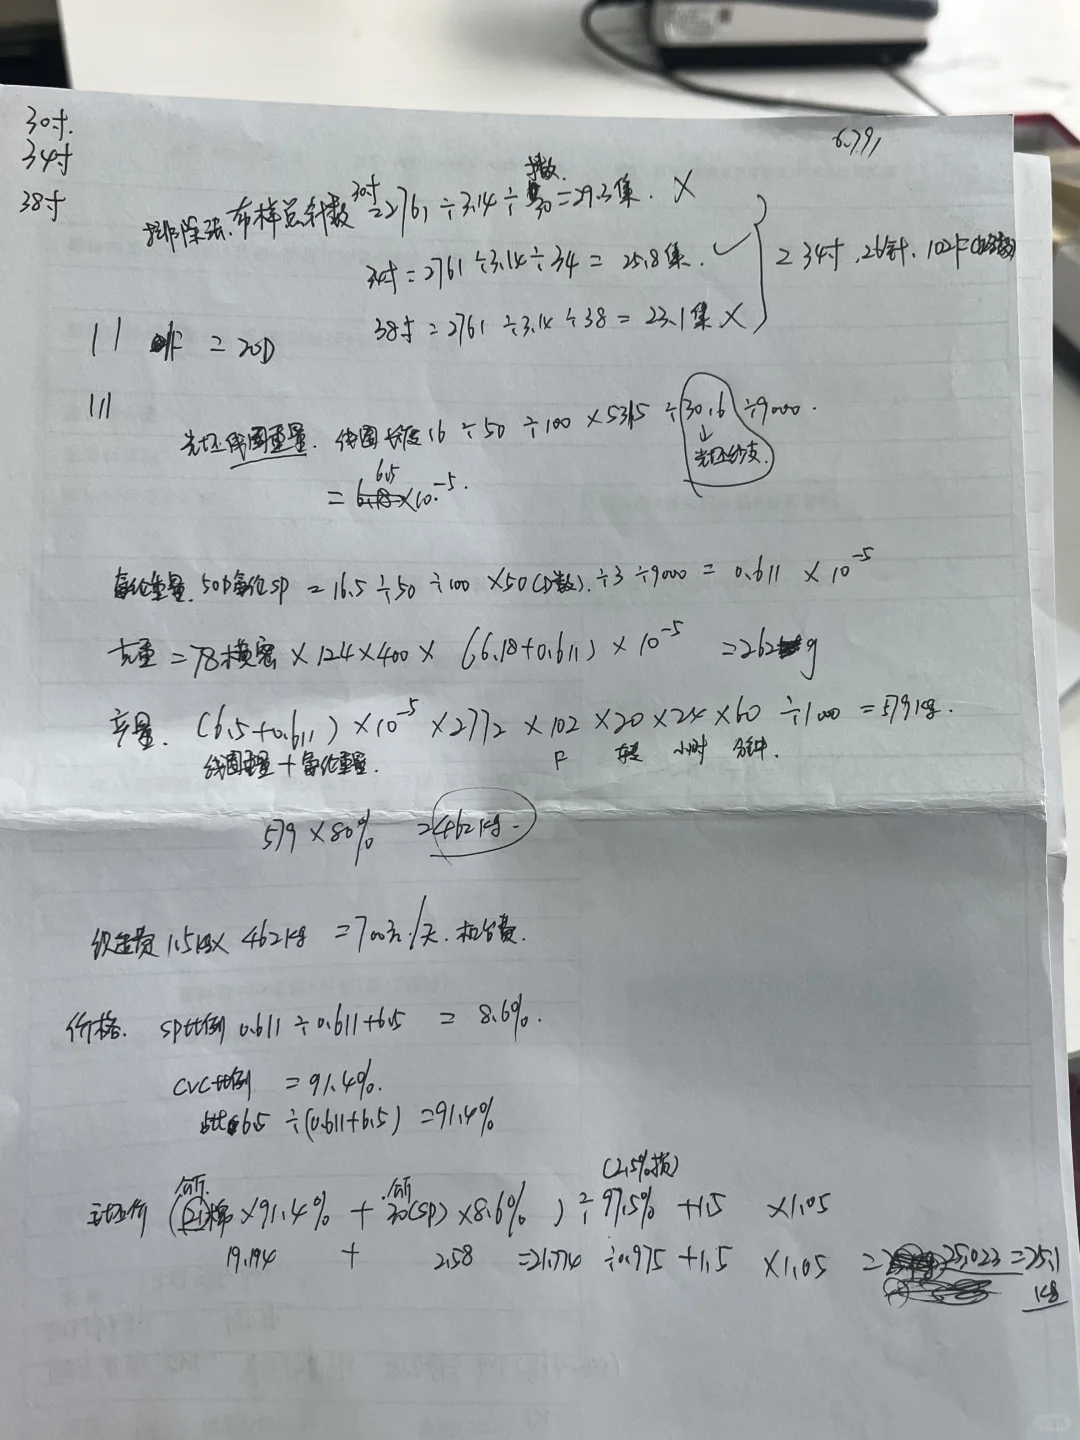 30寸.
34寸
38寸
6.791
排除张.布样总针数 30寸=2761÷3.14÷30=29.3隼. X
寸数.
34寸=2761÷3.14÷34=25.8隼. ✓
=34寸.26针.102F
38寸=2761÷3.14÷38=23.1隼 X
=20D
线圈重量. 线圈长度16÷50÷100×5315÷30.6÷9000.
↓
纱支.
6.5
=6.18×10⁻⁵.
氨纶重量.50D氨纶SP=16.5÷50÷100×50(D数).÷3÷9000=0.611×10⁻⁵
克重=78横密×124×400×(6.18+0.611)×10⁻⁵=262g
产量.(6.5+0.611)×10⁻⁵×2772×102×20×24×60÷1000=579kg.
线圈重量+氨纶重量. F 转 小时 分钟.
579×80%=462kg.
织造费1.5kg×462kg=700元/天.机台费.
价格. SP比例0.611÷0.611+6.5=8.6%.
CVC比例=91.4%.
6.5÷(0.611+6.5)=91.4%
(2.5%损)
坯价(21棉×91.4%+30(SP)×8.6%)÷97.5%+1.5 ×1.05
19.194+2.58=21.774÷0.975+1.5×1.05=25.023=25.1
kg